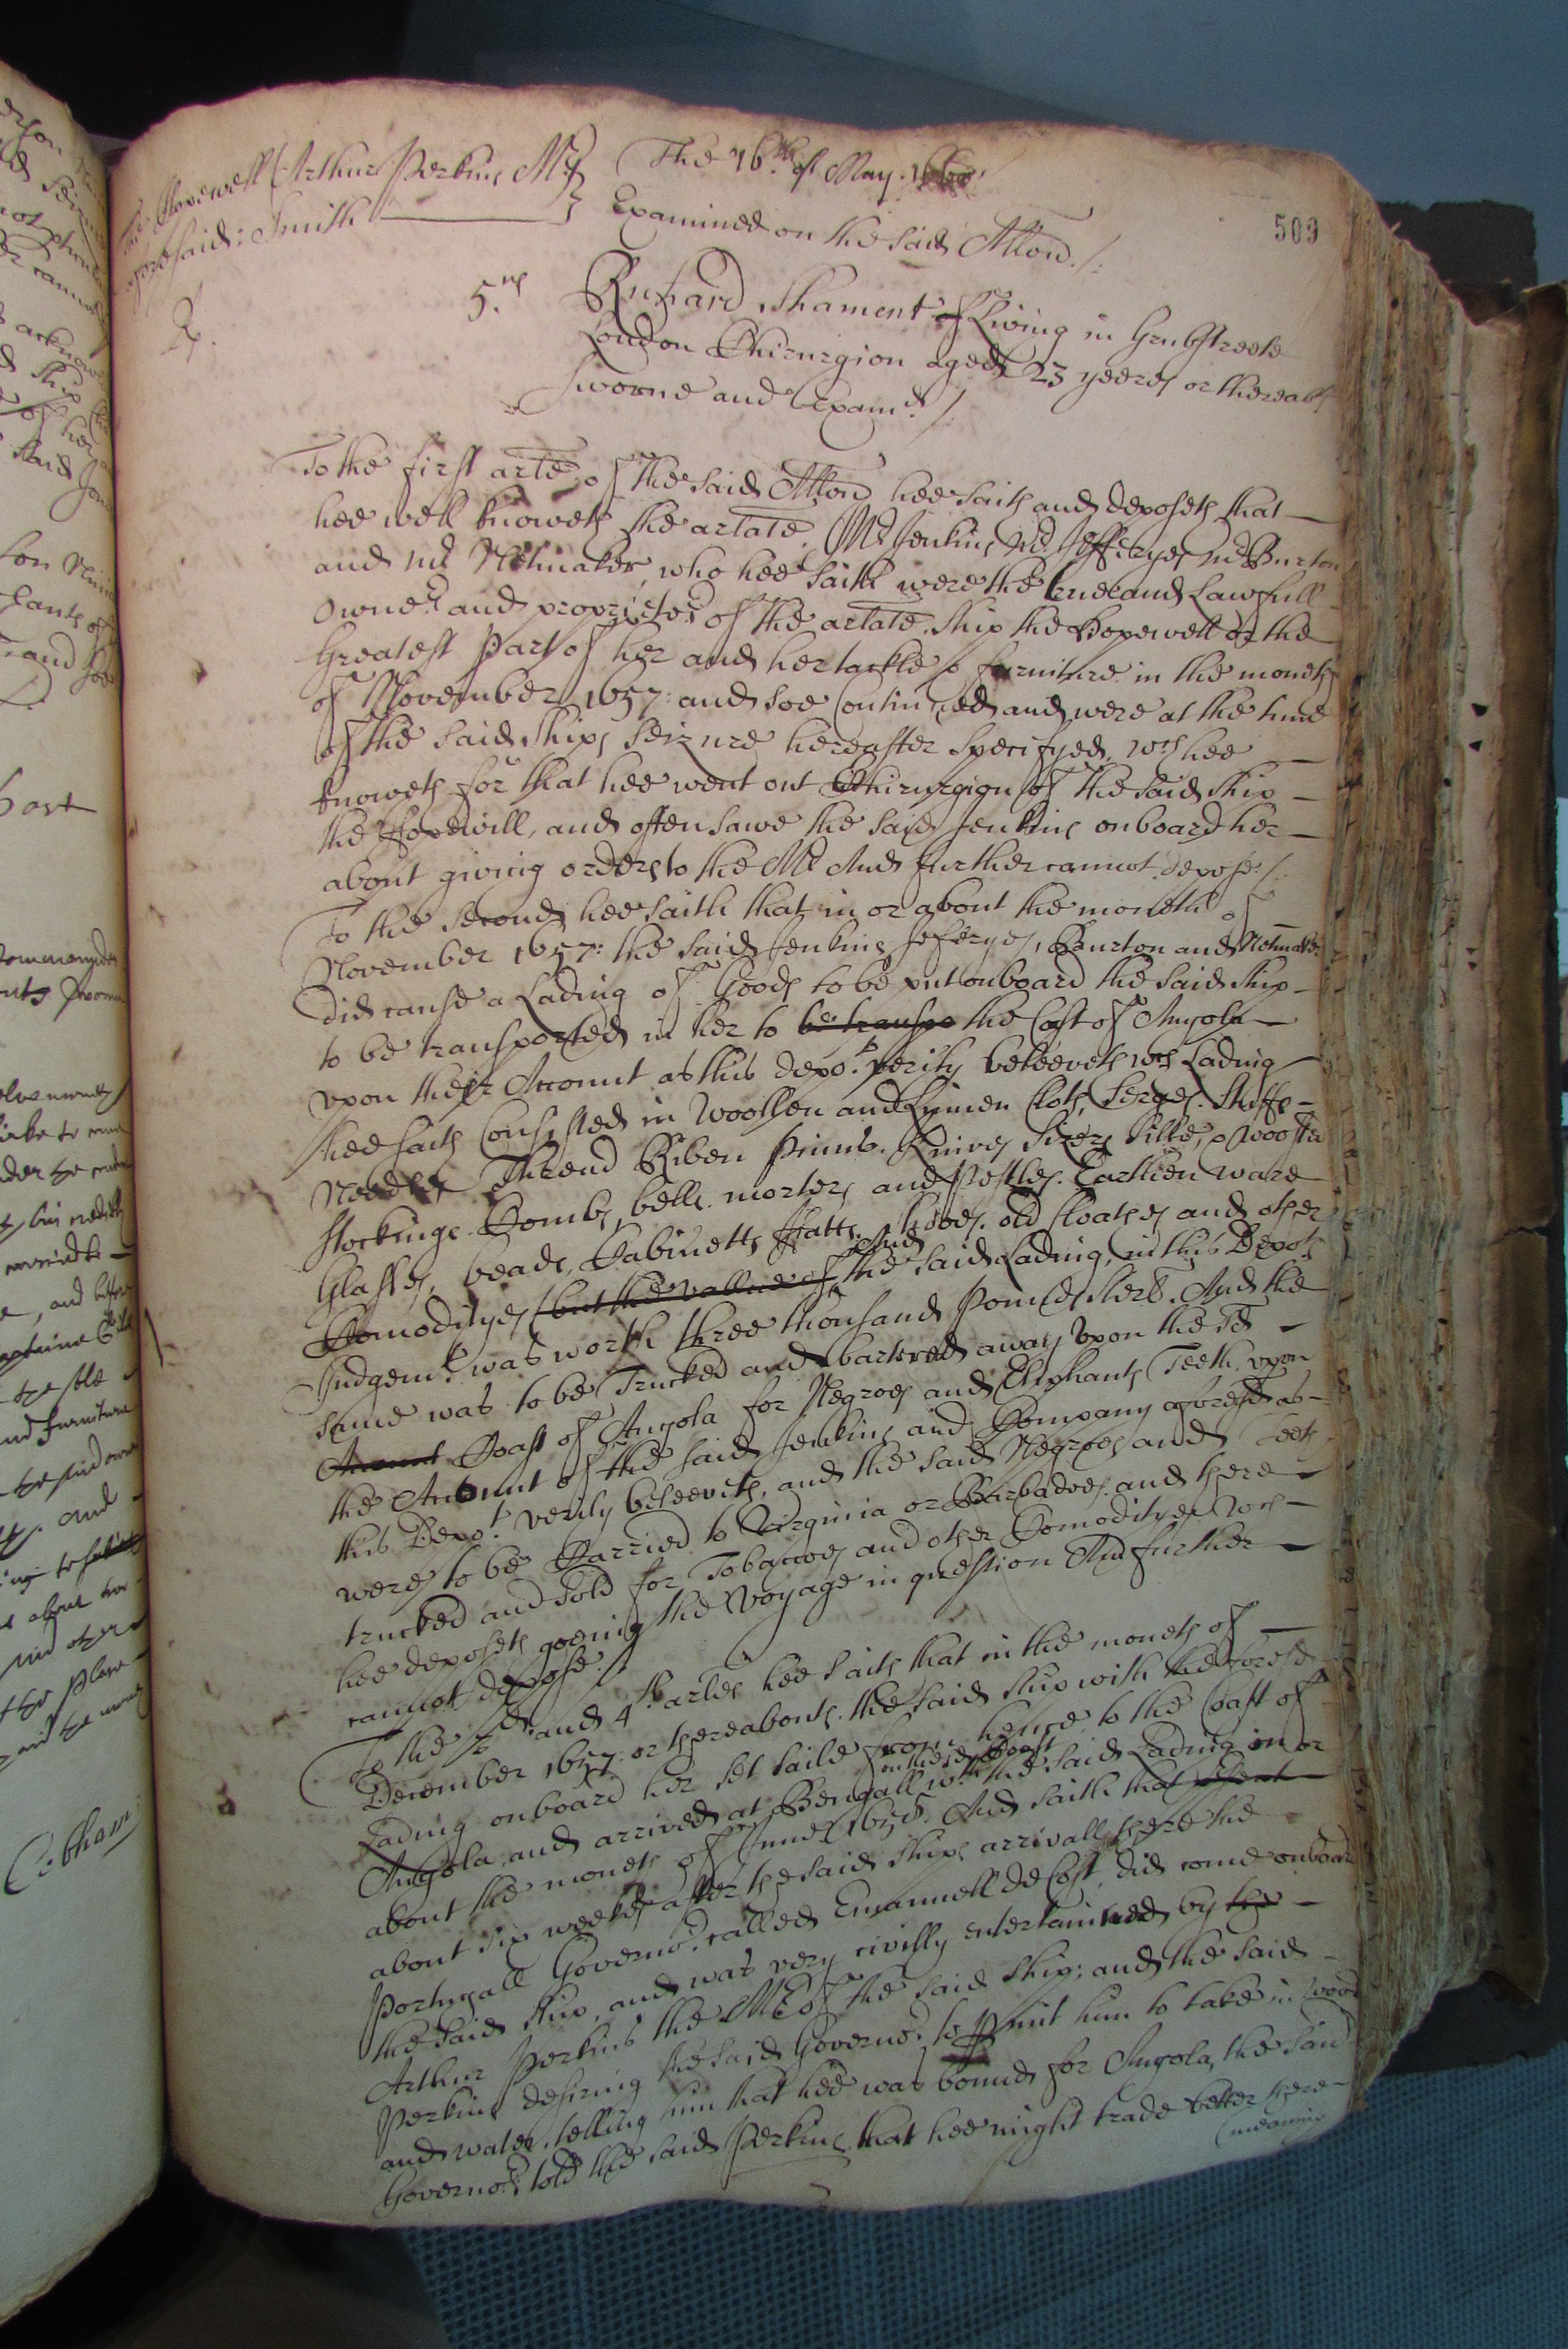 The Hopewell Arthur Perkins Mr
aforesaid: Smith
The 16th of May. 1660
Examined on the said Allon./:
509
5.us
Richard Shament of Living in Grubstreete
London Chirurgion aged 23 yeeres or thereabts
Sworne and Examd./:
To the first arte of the said Allon hee saith and deposeth that
hee well knoweth the artate Mr Jenkins Mr Jefferyes Mr Burton
and Mr Notmaker, who hee saith were the true and Lawfull
Owners and proprietors of the artate ship the Hopewell or the
Greatest Part of her and her tackle & furniture in the moneth
of November 1657: and soe Continued and were at the time
of the said ships seizure hereafter specifyed, wch hee
knoweth for that hee went out Chirurgion of the said ship
the Hopewill, and often sawe the said Jenkins onboard her
about giving orders to the Mr And further cannot depose./:
To the second hee saith that in or about the moneth of
November 1657: the said Jenkins Jeferyes, Burton and Notmaker
did cause a Lading of Goods to be put onboard the said ship
to be transported in her to be transpo the Cost of Angola
vpon their Account as this depot. verily beleeveth wch Lading
hee saith Consisted in Woollen and Lynnen Cloth, Serges. Stuffs
Needles Thread Riben Pinns. Knives Sizers Silke, & Wooster
Stockings. Combs, bells. morters and Pestles. Earthen ware
Glasses, beads, Cabinetts Hatts. shooes. old Cloathes and other
Comodityes (but the vallue of And the said Lading, in this Depots
Judgemt. was worth three thousand Pounds sterl. And the
same was to be Trucked and bartered away Vpon the sd
Account Coast of Angola for Negroes and Eliphants Teeth, vpon
the Account of the said Jenkins and Company aforesd as
this Depot. verily beleeveth, and the said Negroes and Teeth
were to be Carried to Virginia or Barbadoes. and there
trucked and sold for Tobaccoes and other Comodityes Wch
hee deposeth goeing the Voyage in question And further
cannot depose./:
To the 3d and 4th artes hee saith that in the moneth of
December 1657 or thereabouts. the said ship with the foresd
Lading onboard her set saile from hence to the Coast of
Angola, and arrived at Bengall on the sd Coast wth the said Lading in or
about the moneth of June 1658. And saith that about
about six weekes after the said ships arrivall there the
Portugall Governor. called Emanuell de Cost, did come onboard
the said ship, and was very civilly entertained by the
Arthur Perkins the Mr of the said ship; and the said
Perkins desiring the said Governor. to pmit him to take in wood
and water, telling him that hee was bound for Angola, the said
Governor. told the said Perkins that hee might trade better there
(meaning